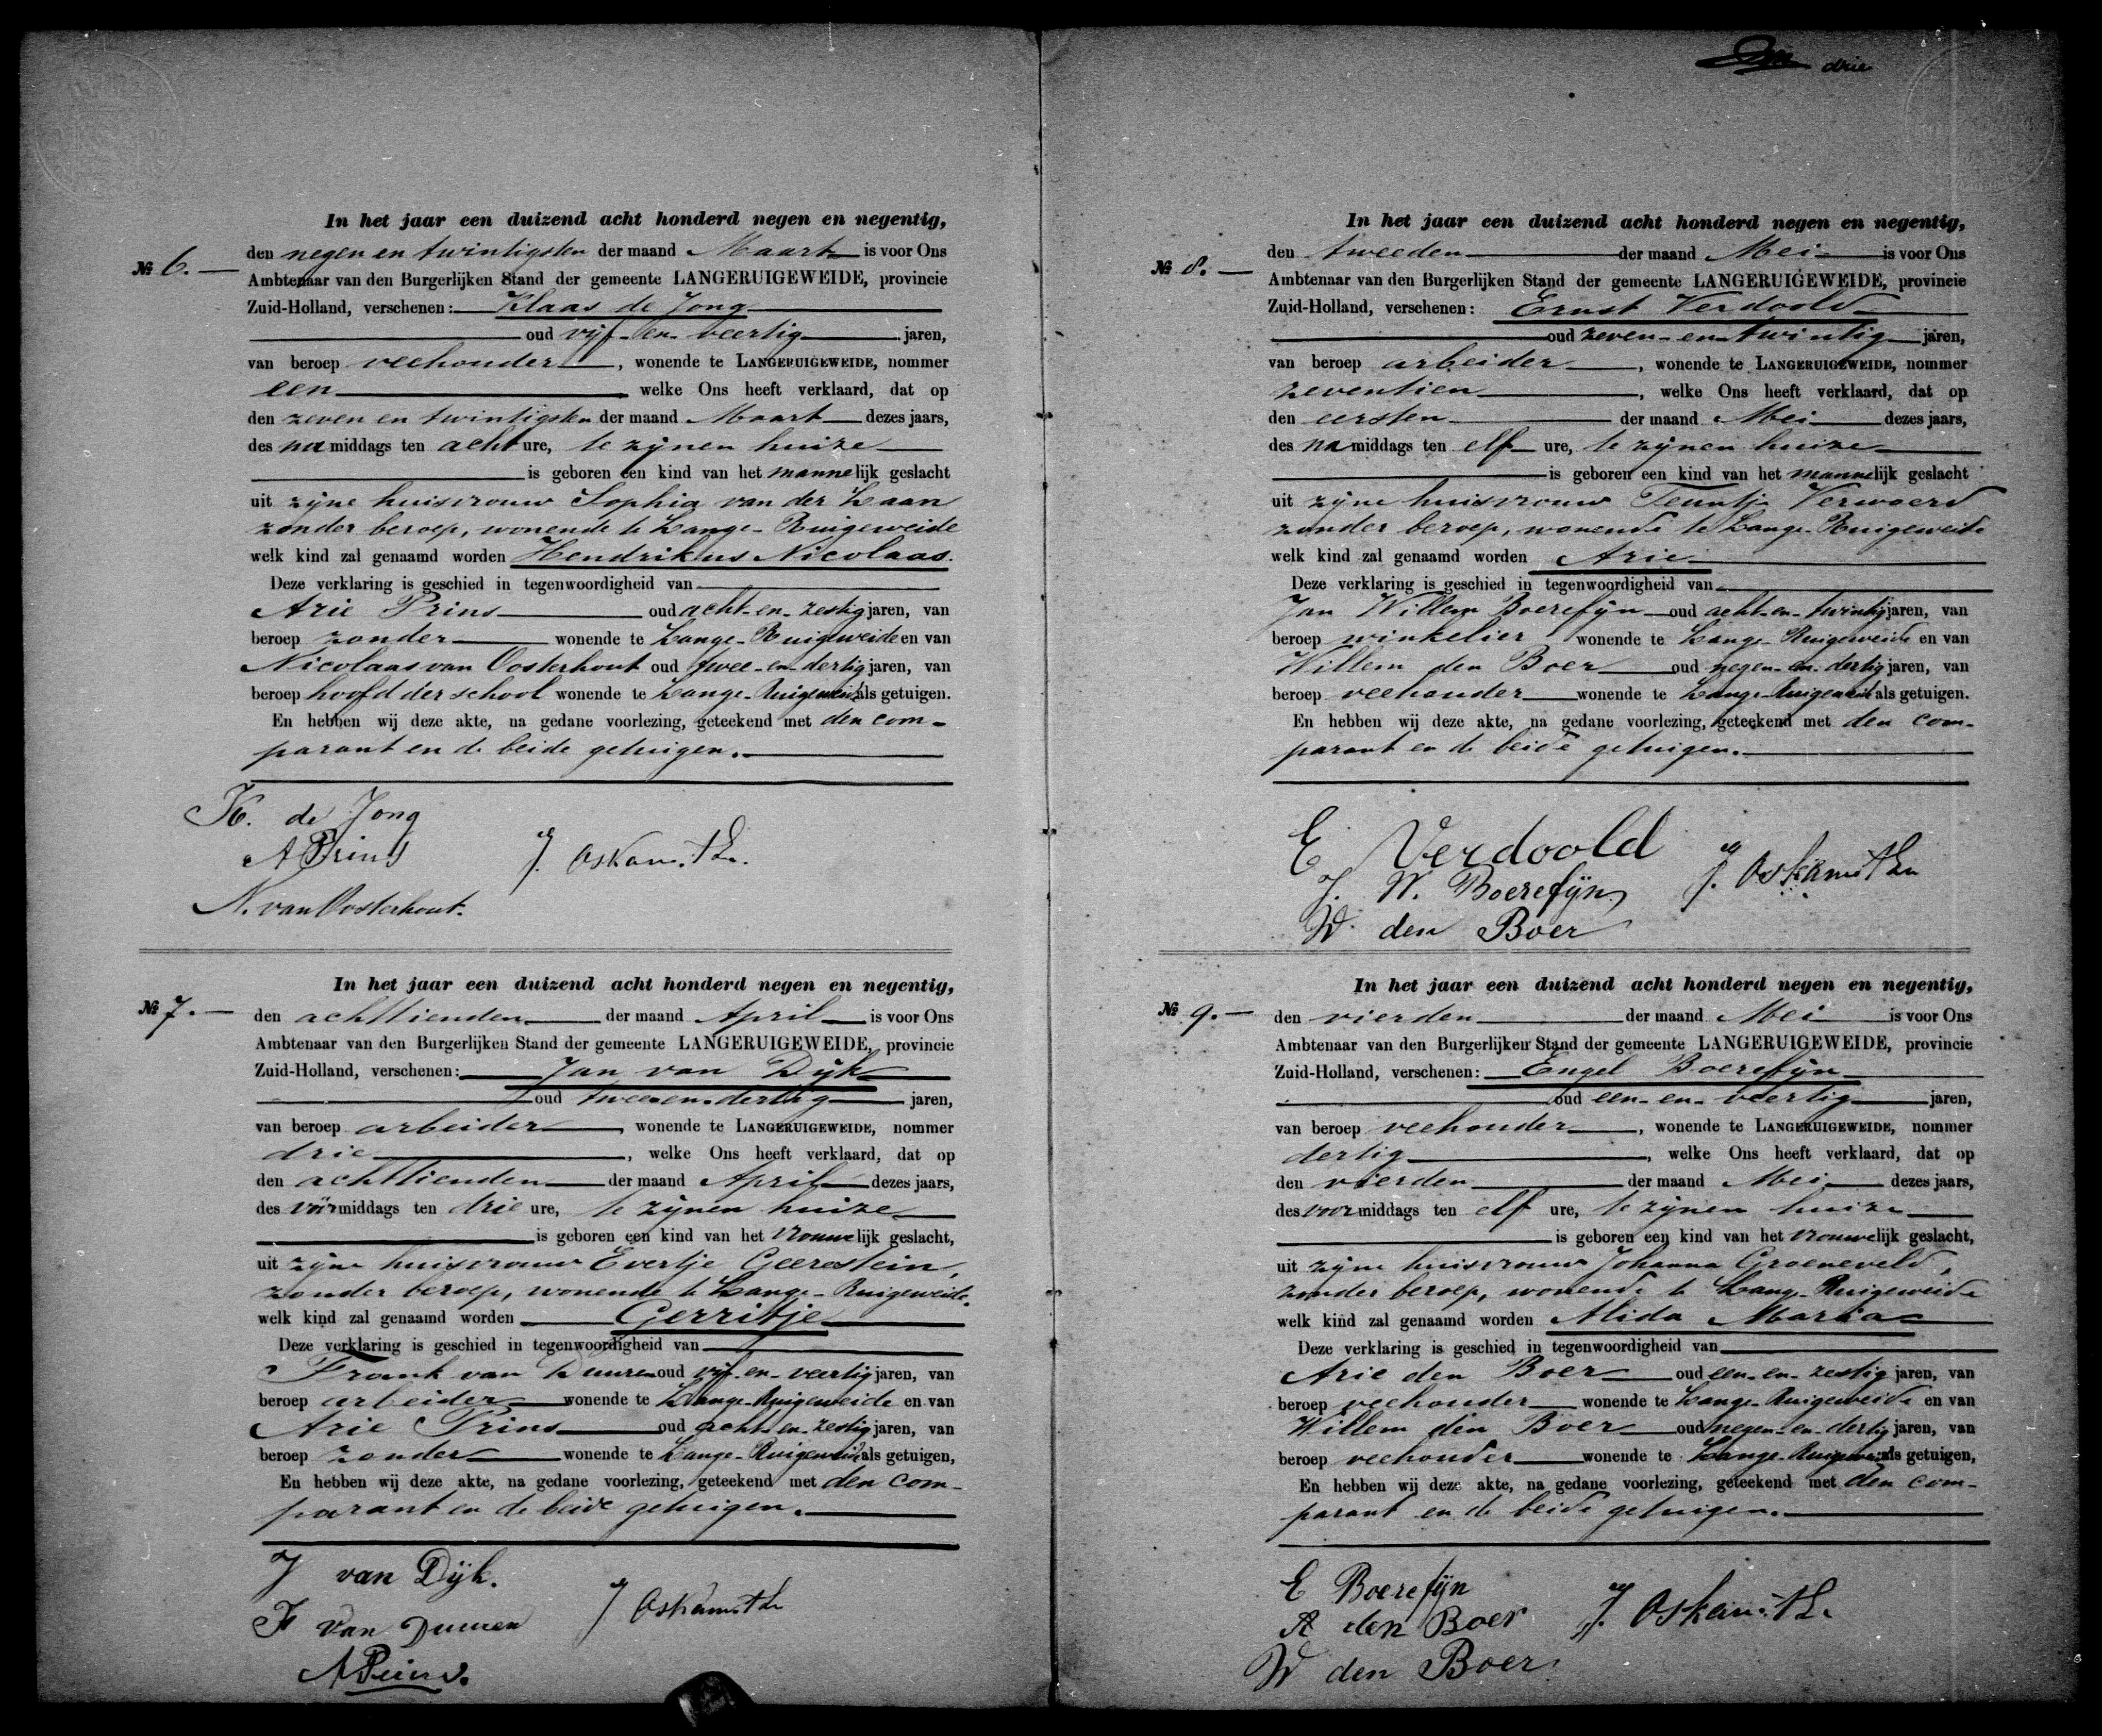 drie
№ 6.
In het jaar een duizend acht honderd negen en negentig,
den negen en twintigsten der maand Maart is voor Ons
Ambtenaar van den Burgerlijken Stand der gemeente LANGERUIGEWEIDE, provincie
Zuid-Holland, verschenen: Klaas de Jong
oud vijf en veertig jaren,
van beroep veehouder, wonende te LANGERUIGEWEIDE, nommer
een welke Ons heeft verklaard, dat op
den zeven en twintigsten der maand Maart dezes jaars,
des na middags ten acht ure, te zijnen huize
is geboren een kind van het mannelijk geslacht
uit zijne huisvrouw Sophia van der Laan
zonder beroep, wonende te Lange-Ruigeweide
welk kind zal genaamd worden Hendrikus Nicolaas.
Deze verklaring is geschied in tegenwoordigheid van
Arie Prins oud acht-en-zestig jaren, van
beroep zonder wonende te Lange-Ruigeweide en van
Nicolaas van Oosterhout oud twee-en-dertig jaren, van
beroep hoofd der school wonende te Lange-Ruigeweide als getuigen.
En hebben wij deze akte, na gedane voorlezing, geteekend met den com-
parant en de beide getuigen.
K. de Jong
A Prins
J. Oskam. Az.
N. van Oosterhout.
№ 7.
In het jaar een duizend acht honderd negen en negentig,
den achttienden der maand April is voor Ons
Ambtenaar van den Burgerlijken Stand der gemeente LANGERUIGEWEIDE, provincie
Zuid-Holland, verschenen: Jan van Dijk
oud twee-en-dertig jaren,
van beroep arbeider wonende te LANGERUIGEWEIDE, nommer
drie, welke Ons heeft verklaard, dat op
den achttienden der maand April dezes jaars,
des vóór middags ten drie ure, te zijnen huize
is geboren een kind van het vrouwelijk geslacht,
uit zijne huisvrouw Evertje Geerestein,
zonder beroep, wonende te Lange-Ruigeweide.
welk kind zal genaamd worden Gerritje
Deze verklaring is geschied in tegenwoordigheid van
Frank van Duuren oud vijf-en-veertig jaren, van
beroep arbeider wonende te Lange-Ruigeweide en van
Arie Prins oud acht-en-zestig jaren, van
beroep zonder wonende te Lange-Ruigeweide als getuigen,
En hebben wij deze akte, na gedane voorlezing, geteekend met den com-
parant en de beide getuigen.
J van Dijk.
F van Duuren
J Oskam. Az
A Prins.
№ 8.
In het jaar een duizend acht honderd negen en negentig,
den tweeden der maand Mei is voor Ons
Ambtenaar van den Burgerlijken Stand der gemeente LANGERUIGEWEIDE, provincie
Zuid-Holland, verschenen: Ernst Verdoold
oud zeven-en-twintig jaren,
van beroep arbeider, wonende te LANGERUIGEWEIDE, nommer
zeventien, welke Ons heeft verklaard, dat op
den eersten der maand Mei dezes jaars,
des na middags ten elf ure, te zijnen huize
is geboren een kind van het mannelijk geslacht
uit zijne huisvrouw Teuntje Verwoerd
zonder beroep, wonende te Lange-Ruigeweide
welk kind zal genaamd worden Arie
Deze verklaring is geschied in tegenwoordigheid van
Jan Willem Boerefijn oud acht-en-twintig jaren, van
beroep winkelier wonende te Lange-Ruigeweide en van
Willem den Boer oud negen-en-dertig jaren, van
beroep veehouder wonende te Lange-Ruigeweide als getuigen.
En hebben wij deze akte, na gedane voorlezing, geteekend met den com-
parant en de beide getuigen.
E Verdoold
J. W. Boerefijn
J. Oskam Az
W. den Boer
№ 9.
In het jaar een duizend acht honderd negen en negentig,
den vierden der maand Mei is voor Ons
Ambtenaar van den Burgerlijken Stand der gemeente LANGERUIGEWEIDE, provincie
Zuid-Holland, verschenen: Engel Boerefijn
oud een-en-veertig jaren,
van beroep veehouder, wonende te LANGERUIGEWEIDE, nommer
dertig, welke Ons heeft verklaard, dat op
den vierden der maand Mei dezes jaars,
des voor middags ten elf ure, te zijnen huize
is geboren een kind van het vrouwelijk geslacht,
uit zijne huisvrouw Johanna Groeneveld,
zonder beroep, wonende te Lange-Ruigeweide
welk kind zal genaamd worden Alida Maria
Deze verklaring is geschied in tegenwoordigheid van
Arie den Boer oud een-en-zestig jaren, van
beroep veehouder wonende te Lange-Ruigeweide en van
Willem den Boer oud negen-en-dertig jaren, van
beroep veehouder wonende te Lange-Ruigeweide als getuigen,
En hebben wij deze akte, na gedane voorlezing, geteekend met den com-
parant en de beide getuigen.
E Boerefijn
A den Boer
J. Oskam. Az.
W den Boer